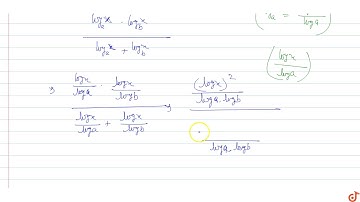 log_a x · log_b x / log_a x + log_b x
= 1 / log a
(log x / log a)
⇒ (log x / log a · log x / log b) / (log x / log a + log x / log b) ⇒ ((log x)² / log a · log b) / ( / log a · log b)